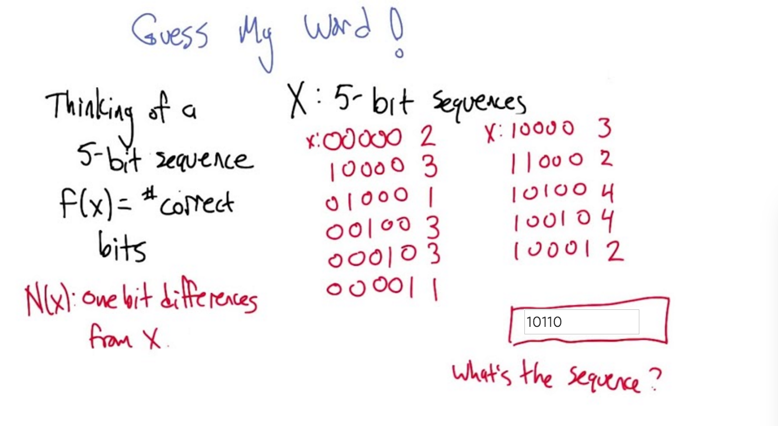 Guess My Word!
Thinking of a
5-bit sequence
f(x) = # correct
bits
N(x): one bit differences
from X.
X: 5-bit sequences
x: 00000 2
10000 3
01000 1
00100 3
00010 3
00001 1
X: 10000 3
11000 2
10100 4
10010 4
10001 2
10110
What's the sequence?